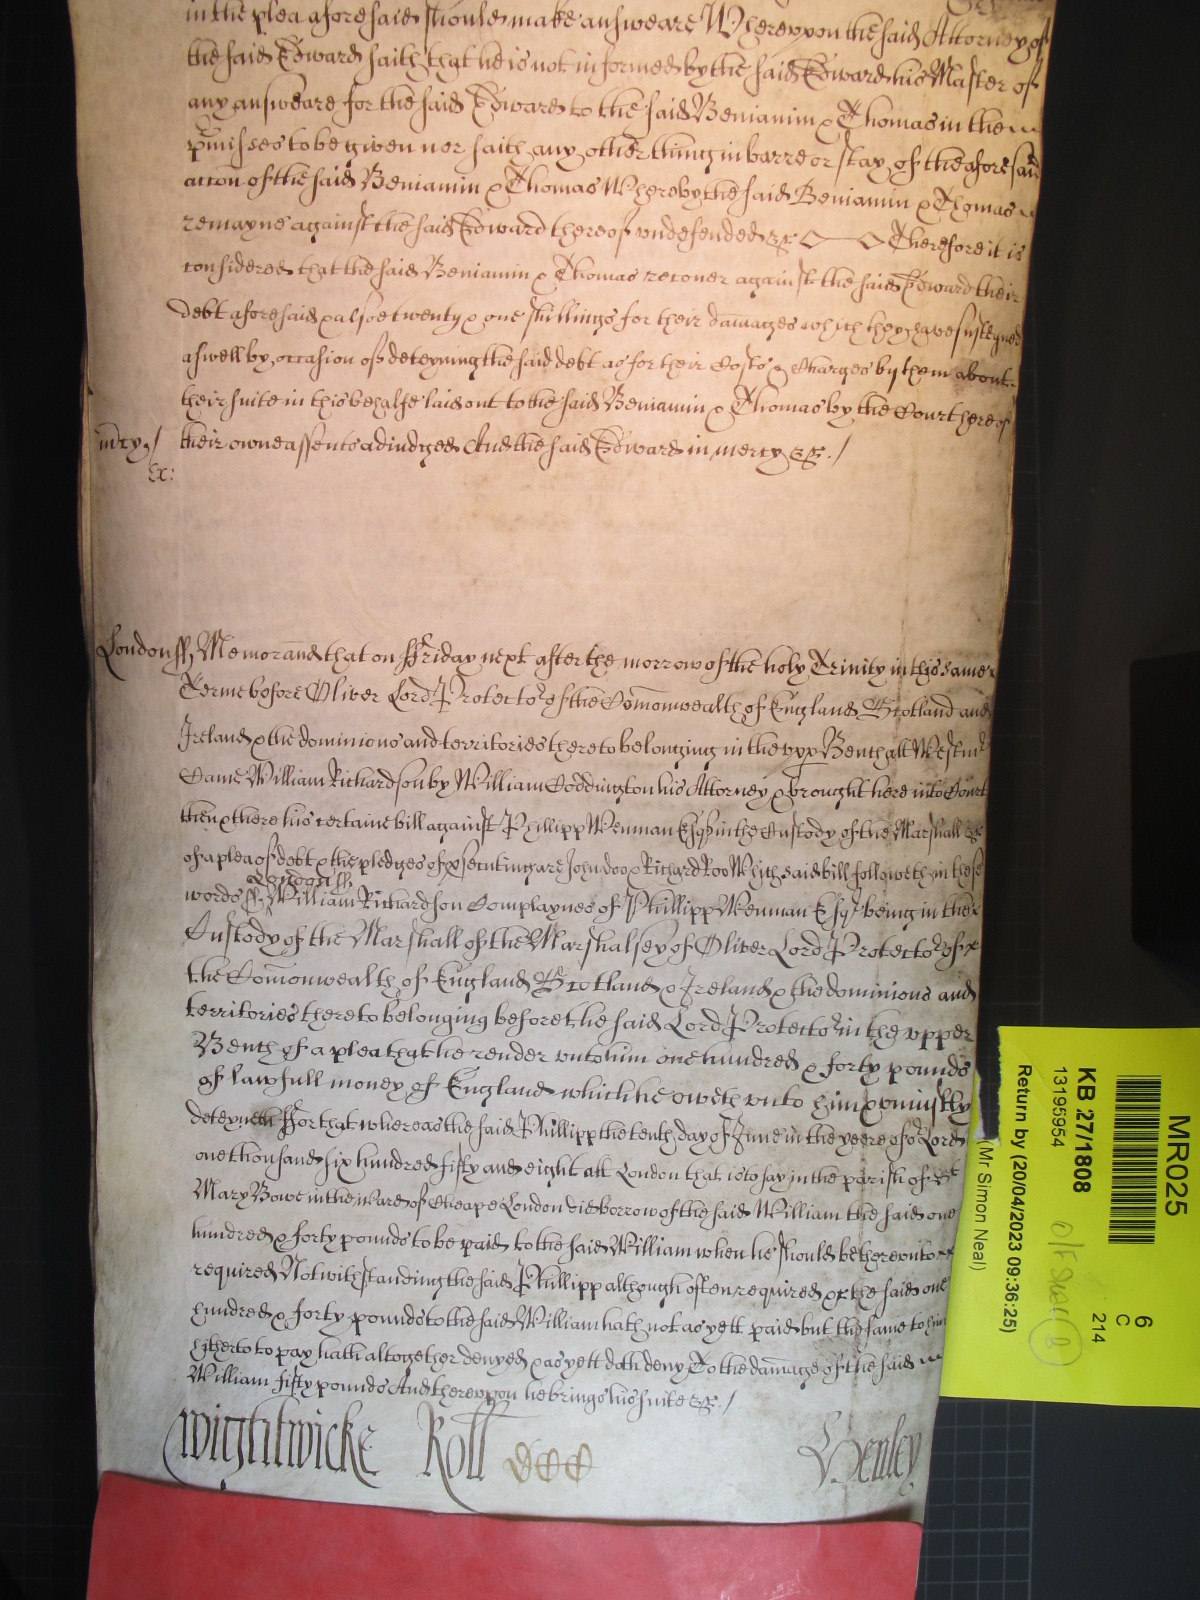 in the plea aforesaid should make answeare Whereupon the said Attorney of
the said Edward saith that he is not informed by the said Edward his Master of
any answeare for the said Edward to the said Beniamin & Thomas in the
p̄misses to be given nor saith any other thing in barre or stay of the aforesaid
accon̄ of the said Beniamin & Thomas Whereby the said Beniamin & Thomas
remayne against the said Edward thereof undefended &c Therefore it is
considered that the said Beniamin & Thomas recover against the said Edward their
debt aforesaid & alsoe twenty & one shillings for their dam̄ages which they have susteyned
aswell by occasion of deteyning the said debt as for their Costs & Charges by them about
their suite in this behalfe laid out to the said Beniamin & Thomas by the Court here of
mercy / their owne assents adiudged And the said Edward in mercy &c. /
Ex:
London ss, Memorand that on Friday next after the morrow of the holy Trinity in this same
Terme before Oliver Lord Protector of the Com̄onwealth of England Scotland and
Ireland & the dominions and territories thereto belonging in the upp Bench att Westmr
Came William Richardson by William Coddington his Attorney & brought here into Court
then & there his certaine bill against Phillipp Wenman Esqr in the Custody of the Marshall &c
of a plea of debt & the pledges of p̄secuting are John doo & Richard Roo Which said bill followeth in these
London ss
words ss, William Richardson Complaynes of Phillipp Wenman Esqr being in the
Custody of the Marshall of the Marshalsey of Oliver Lord Protector of
the Com̄onwealth of England Scotland & Ireland & the dominions and
territories thereto belonging before the said Lord Protector in the upper
Bench of a plea that he render unto him one hundred & forty pounds
of lawfull money of England which he oweth unto him & uniustly
deteyneth For that whereas the said Phillipp the tenth day of June in the yeere of or Lord
one thousand six hundred fifty and eight att London that is to say in the parish of St
Mary Bowe in the ward of Cheape London did borrow of the said William the said one
hundred & forty pounds to be paid to the said William when he should be thereunto
required Notwithstanding the said Phillipp although often required &c the said one
hundred & forty pounds to the said William hath not as yett paid but the same to him
hitherto to pay hath altogether denyed & as yett doth deny To the dam̄age of the said
William fifty pounds And thereupon he brings his suite &c. /
Wightwicke Roll Henley
MR025
6
C
214
KB 27/1808
13195954
Return by (20/04/2023 09:36:25)
(Mr Simon Neal)